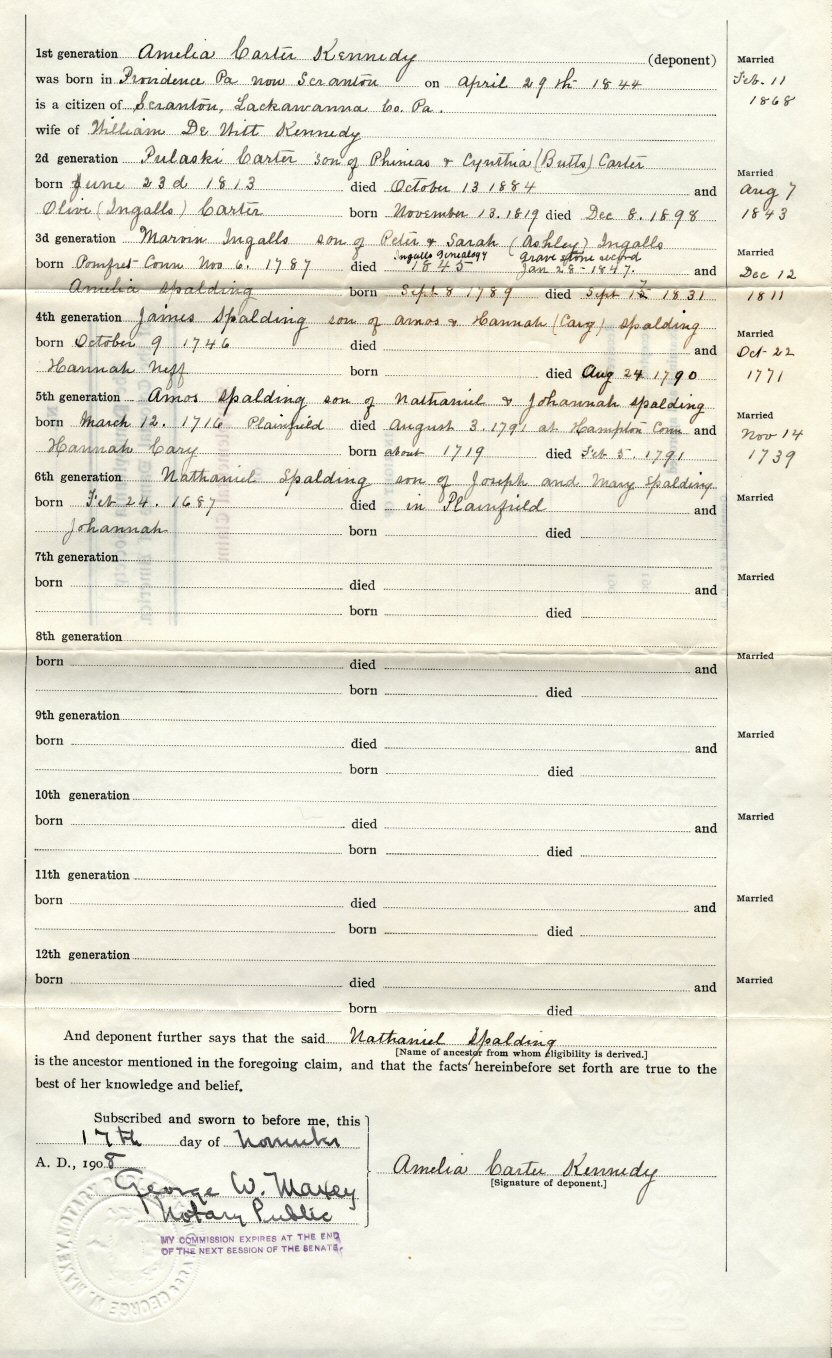 1st generation Amelia Carter Kennedy (deponent) Married
was born in Providence Pa now Scranton on April 29th 1844 Feb. 11
is a citizen of Scranton, Lackawanna Co. Pa. 1868
wife of William De Witt Kennedy
2d generation Pulaski Carter son of Phinias & Cynthia (Butts) Carter Married
born June 23d 1813 died October 13 1884 and Aug 7
Olive (Ingalls) Carter born November 13. 1819 died Dec 8. 1898 1843
3d generation Marvin Ingalls son of Peter & Sarah (Ashley) Ingalls Married
Ingalls Genealogy Grave stone record
born Pomfret Conn Nov 6. 1787 died 1845 Jan 28-1847. and Dec 12
Amelia Spalding born Sept 8 1789 died Sept 1831 1811
4th generation James Spalding son of Amos & Hannah (Cary) Spalding Married
born October 9 1746 died and Oct 22
Hannah Neff born died Aug 24 1790 1771
5th generation Amos Spalding son of Nathaniel & Johannah Spalding Married
born March 12. 1716 Plainfield died August 3. 1791 at Hampton Conn and Nov 14
Hannah Cary born about 1719 died Feb 5. 1791 1739
6th generation Nathaniel Spalding son of Joseph and Mary Spalding Married
born Feb 24. 1687 died in Plainfield and
Johannah born died
7th generation Married
born died and
born died
8th generation Married
born died and
born died
9th generation Married
born died and
born died
10th generation Married
born died and
born died
11th generation Married
born died and
born died
12th generation Married
born died and
born died
And deponent further says that the said Nathaniel Spalding
[Name of ancestor from whom eligibility is derived.]
is the ancestor mentioned in the foregoing claim, and that the facts hereinbefore set forth are true to the
best of her knowledge and belief.
Subscribed and sworn to before me, this
17th day of November
A. D., 1908
George W. Maxey
Notary Public
MY COMMISSION EXPIRES AT THE END
OF THE NEXT SESSION OF THE SENATE.
Amelia Carter Kennedy
[Signature of deponent.]
GEORGE W. MAXEY, NOTARY